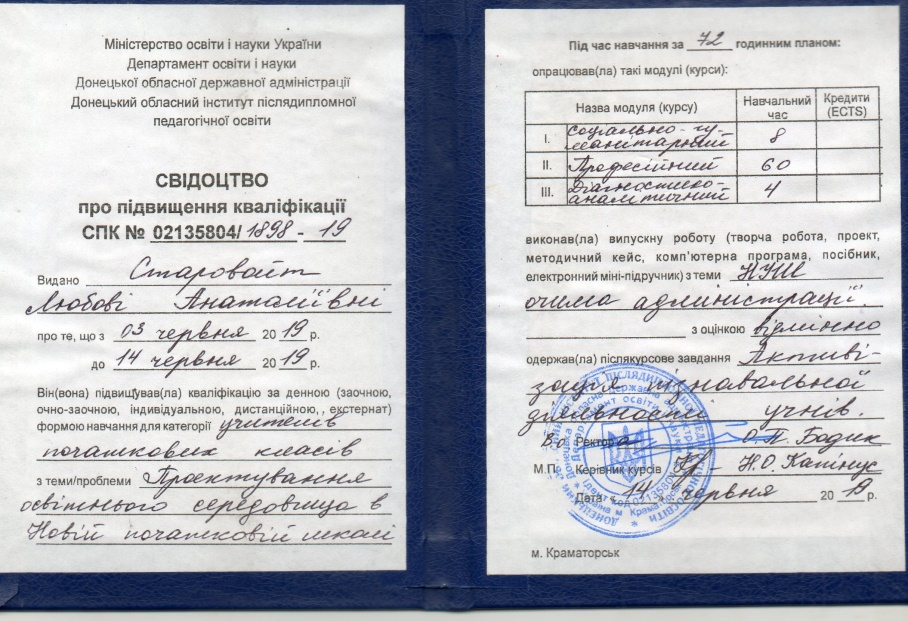 Міністерство освіти і науки України
Департамент освіти і науки
Донецької обласної державної адміністрації
Донецький обласний інститут післядипломної
педагогічної освіти
СВІДОЦТВО
про підвищення кваліфікації
СПК № 02135804/1898-19
Видано Старовойт
Любові Анатоліївні
про те, що з 03 червня 2019 р.
до 14 червня 2019 р.
Він(вона) підвищував(ла) кваліфікацію за денною (заочною,
очно-заочною, індивідуальною, дистанційною, екстернат)
формою навчання для категорії учителів
початкових класів
з теми/проблеми Проєктування
освітнього середовища в
Новій початковій школі
Під час навчання за 72 годинним планом:
опрацював(ла) такі модулі (курси):
Назва модуля (курсу) Навчальний час Кредити (ECTS)
I. Соціально-гу-
манітарний 8
II. Професійний 60
III. Діагностико-
аналітичний 4
виконав(ла) випускну роботу (творча робота, проект,
методичний кейс, комп'ютерна програма, посібник,
електронний міні-підручник) з теми НУШ
очима адміністрації.
з оцінкою відмінно
одержав(ла) післякурсове завдання Активі-
зація пізнавальної
діяльності учнів.
Ректора О.П. Бадик
М.П. Керівник курсів Н.О. Капінус
Дата «14» червня 2019 р.
м. Краматорськ